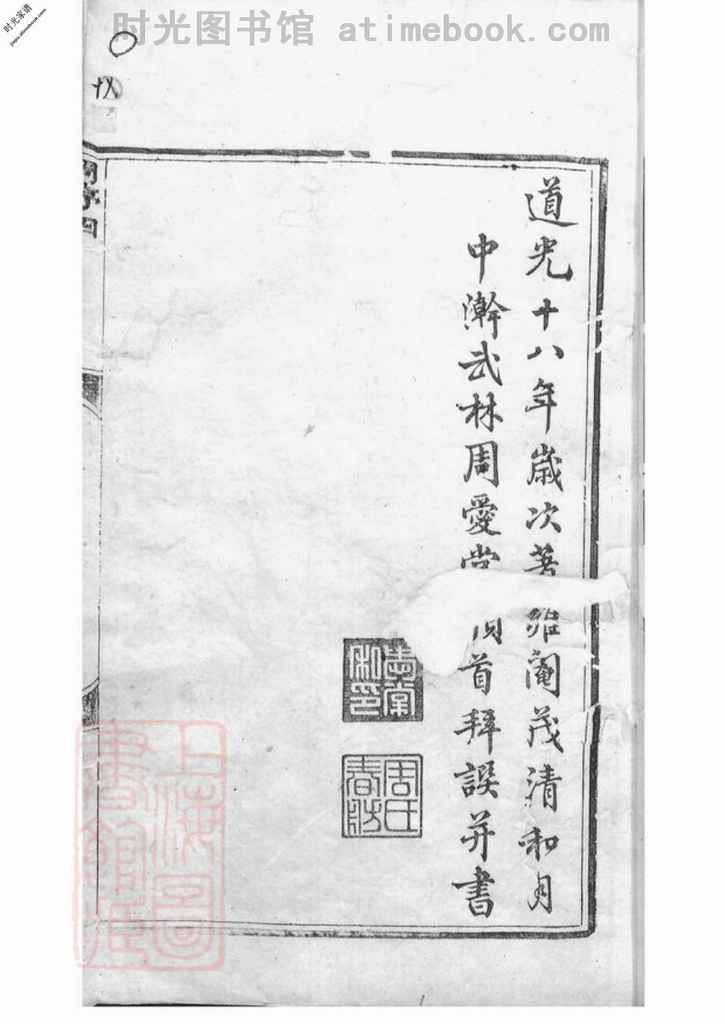 时光图书馆 atimebook.com
时光家谱
道光十八年歲次著雍閹茂清和月
中澣武林周愛堂頓首拜譔并書
周氏春防
上海圖書館藏